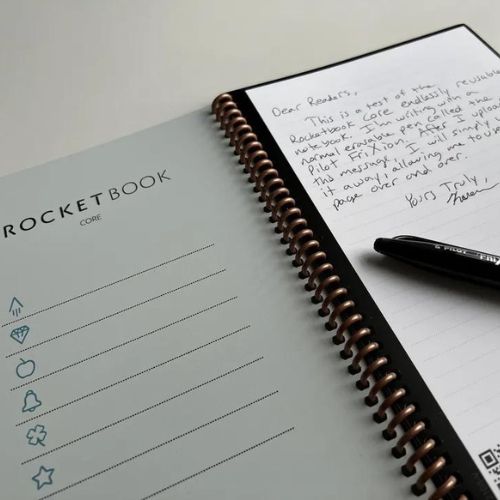 ROCKETBOOK
CORE
Dear Readers,
This is a test of the
Rocketbook Core endlessly reusable
notebook. I'm writing with a
normal erasable pen called the
Pilot FriXion. After I upload
this message, I will simply
it away, allowing me to
page over and over.
Yours Truly,
PILOT